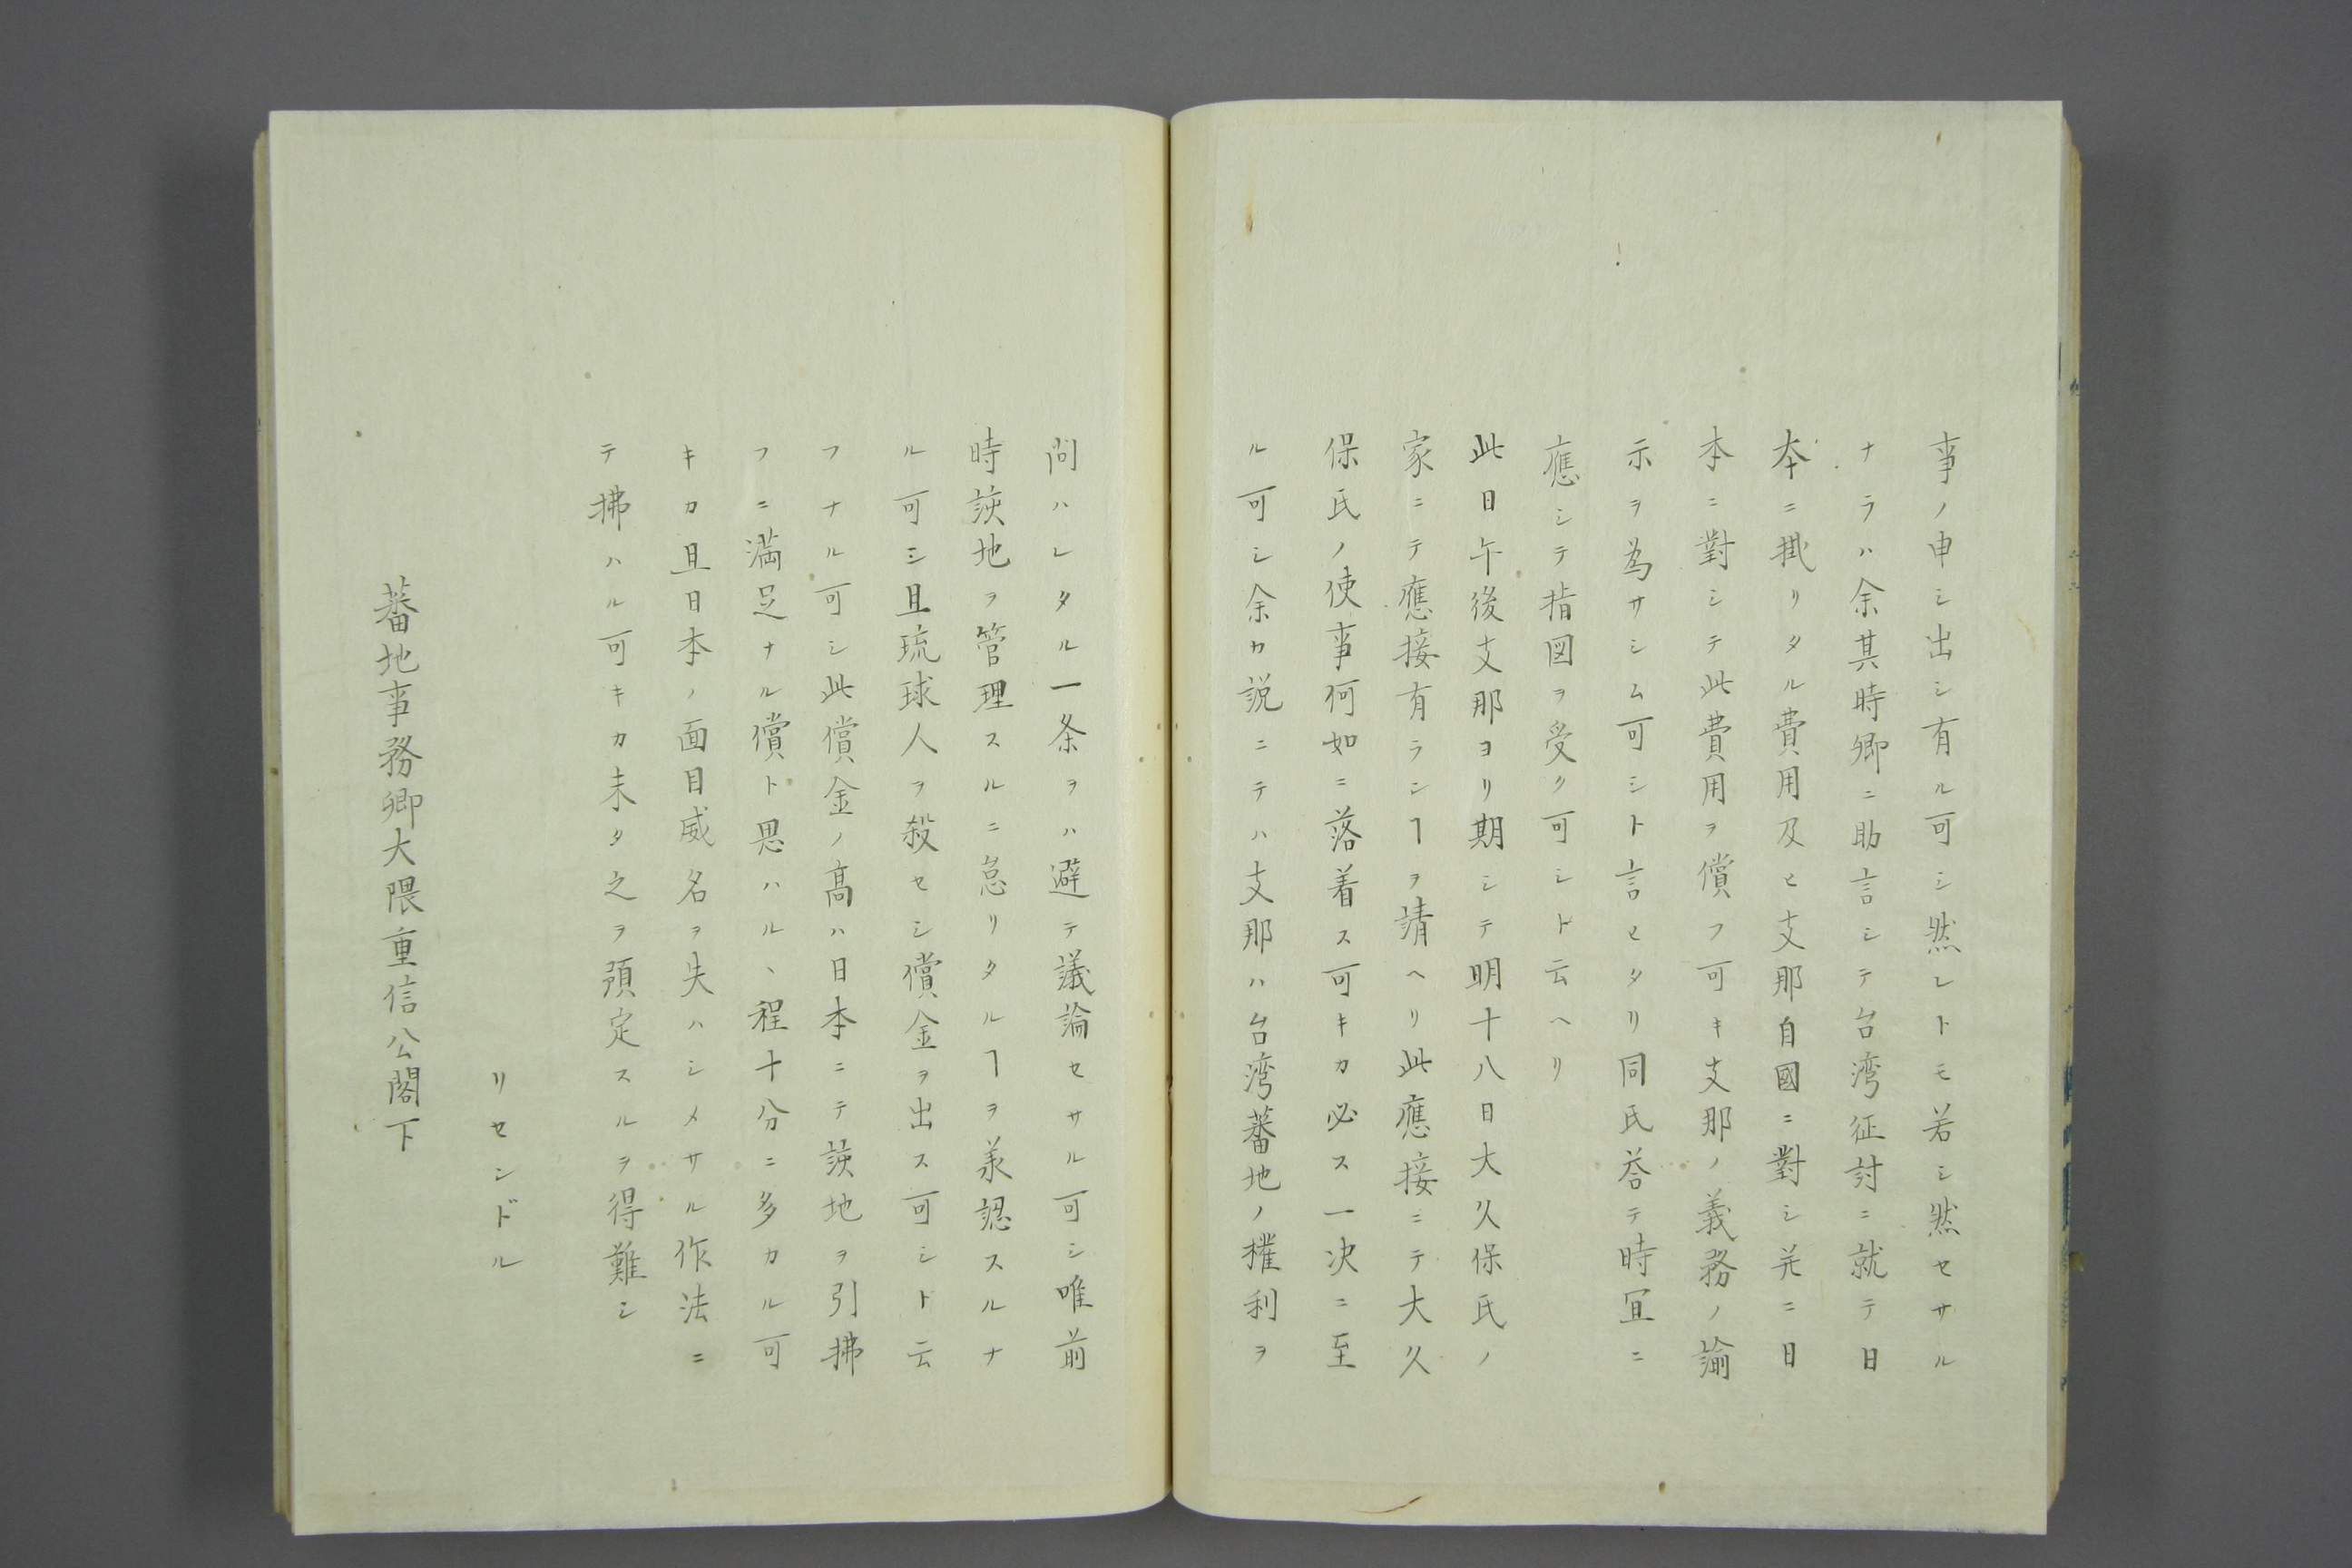 事ノ申シ出シ有ル可シ然レトモ若シ然セサル
ナラハ余其時卿ニ助言シテ台湾征討ニ就テ日
本ニ掛リタル費用及ヒ支那自國ニ對シ并ニ日
本ニ對シテ此費用ヲ償フ可キ支那ノ義務ノ諭
示ヲ為サシム可シト言ヒタリ同氏答テ時宜ニ
應シテ指図ヲ受ク可シト云ヘリ
此日午後支那ヨリ期シテ明十八日大久保氏ノ
家ニテ應接有ランヿヲ請ヘリ此應接ニテ大久
保氏ノ使事何如ニ落着ス可キカ必ス一決ニ至
ル可シ余カ説ニテハ支那ハ台湾蕃地ノ權利ヲ
問ハレタル一条ヲハ避テ議論セサル可シ唯前
時該地ヲ管理スルニ怠リタルヿヲ承認スルナ
ル可シ且琉球人ヲ殺セシ償金ヲ出ス可シト云
フナル可シ此償金ノ髙ハ日本ニテ該地ヲ引拂
フニ満足ナル償ト思ハルヽ程十分ニ多カル可
キカ且日本ノ面目威名ヲ失ハシメサル作法ニ
テ拂ハル可キカ未タ之ヲ預定スルヲ得難シ
リセンドル
蕃地事務卿大隈重信公閣下